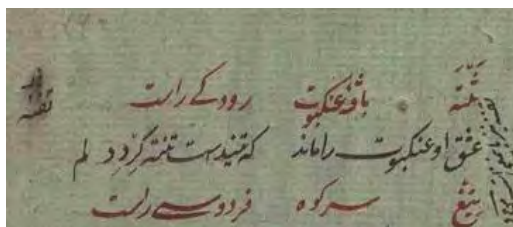 تنته بافته عنکبوت رودکی راست تفنه
عشق او عنکبوت را ماند که تنیدست تنته گرد دلم
تیغ سر کوه فردوسی راست